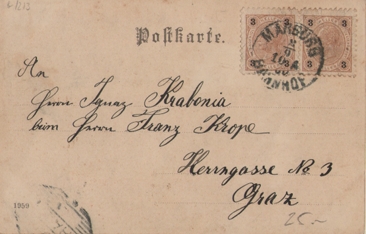 Postkarte.
3 3 3 3
MARBURG
BAHNHOF
An
Herrn Ignaz Krabonia
beim Herrn Franz Krope
Herrngasse No. 3
Graz
25.-
1950